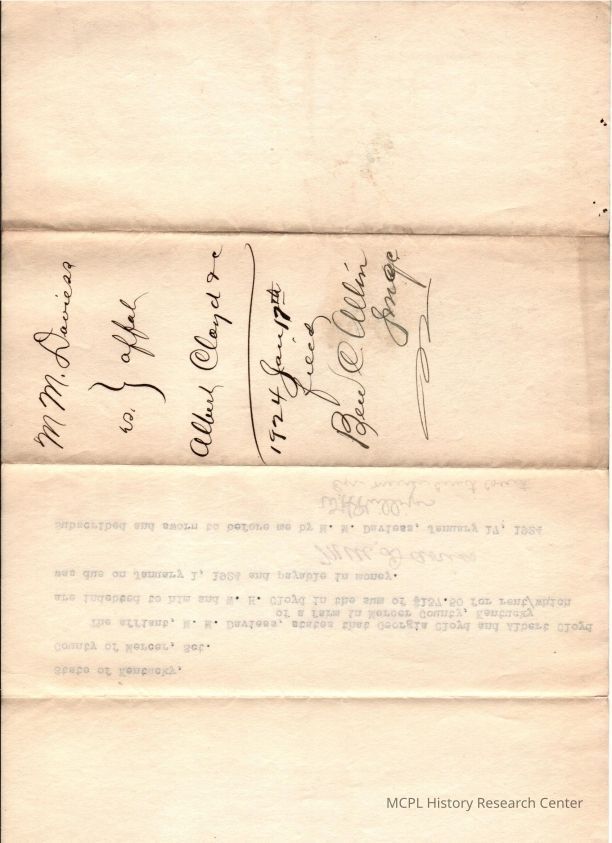 M M. Daviess
vs. } affah
Albert Cloyd &c
1924 Jan 17th
filed
Ben C. Allin
Jmcc
State of Kentucky,
County of Mercer, Sct.
The affiant, M. M. Daviess, states that Georgia Cloyd and Albert Cloyd
of a farm in Mercer County, Kentucky
are indebted to him and W. H. Cloyd in the sum of $157.50 for rent/which
was due on January 1, 1924 and payable in money.
M M Daviess
Subscribed and sworn to before me by M. M. Daviess, January 17, 1924
MCPL History Research Center